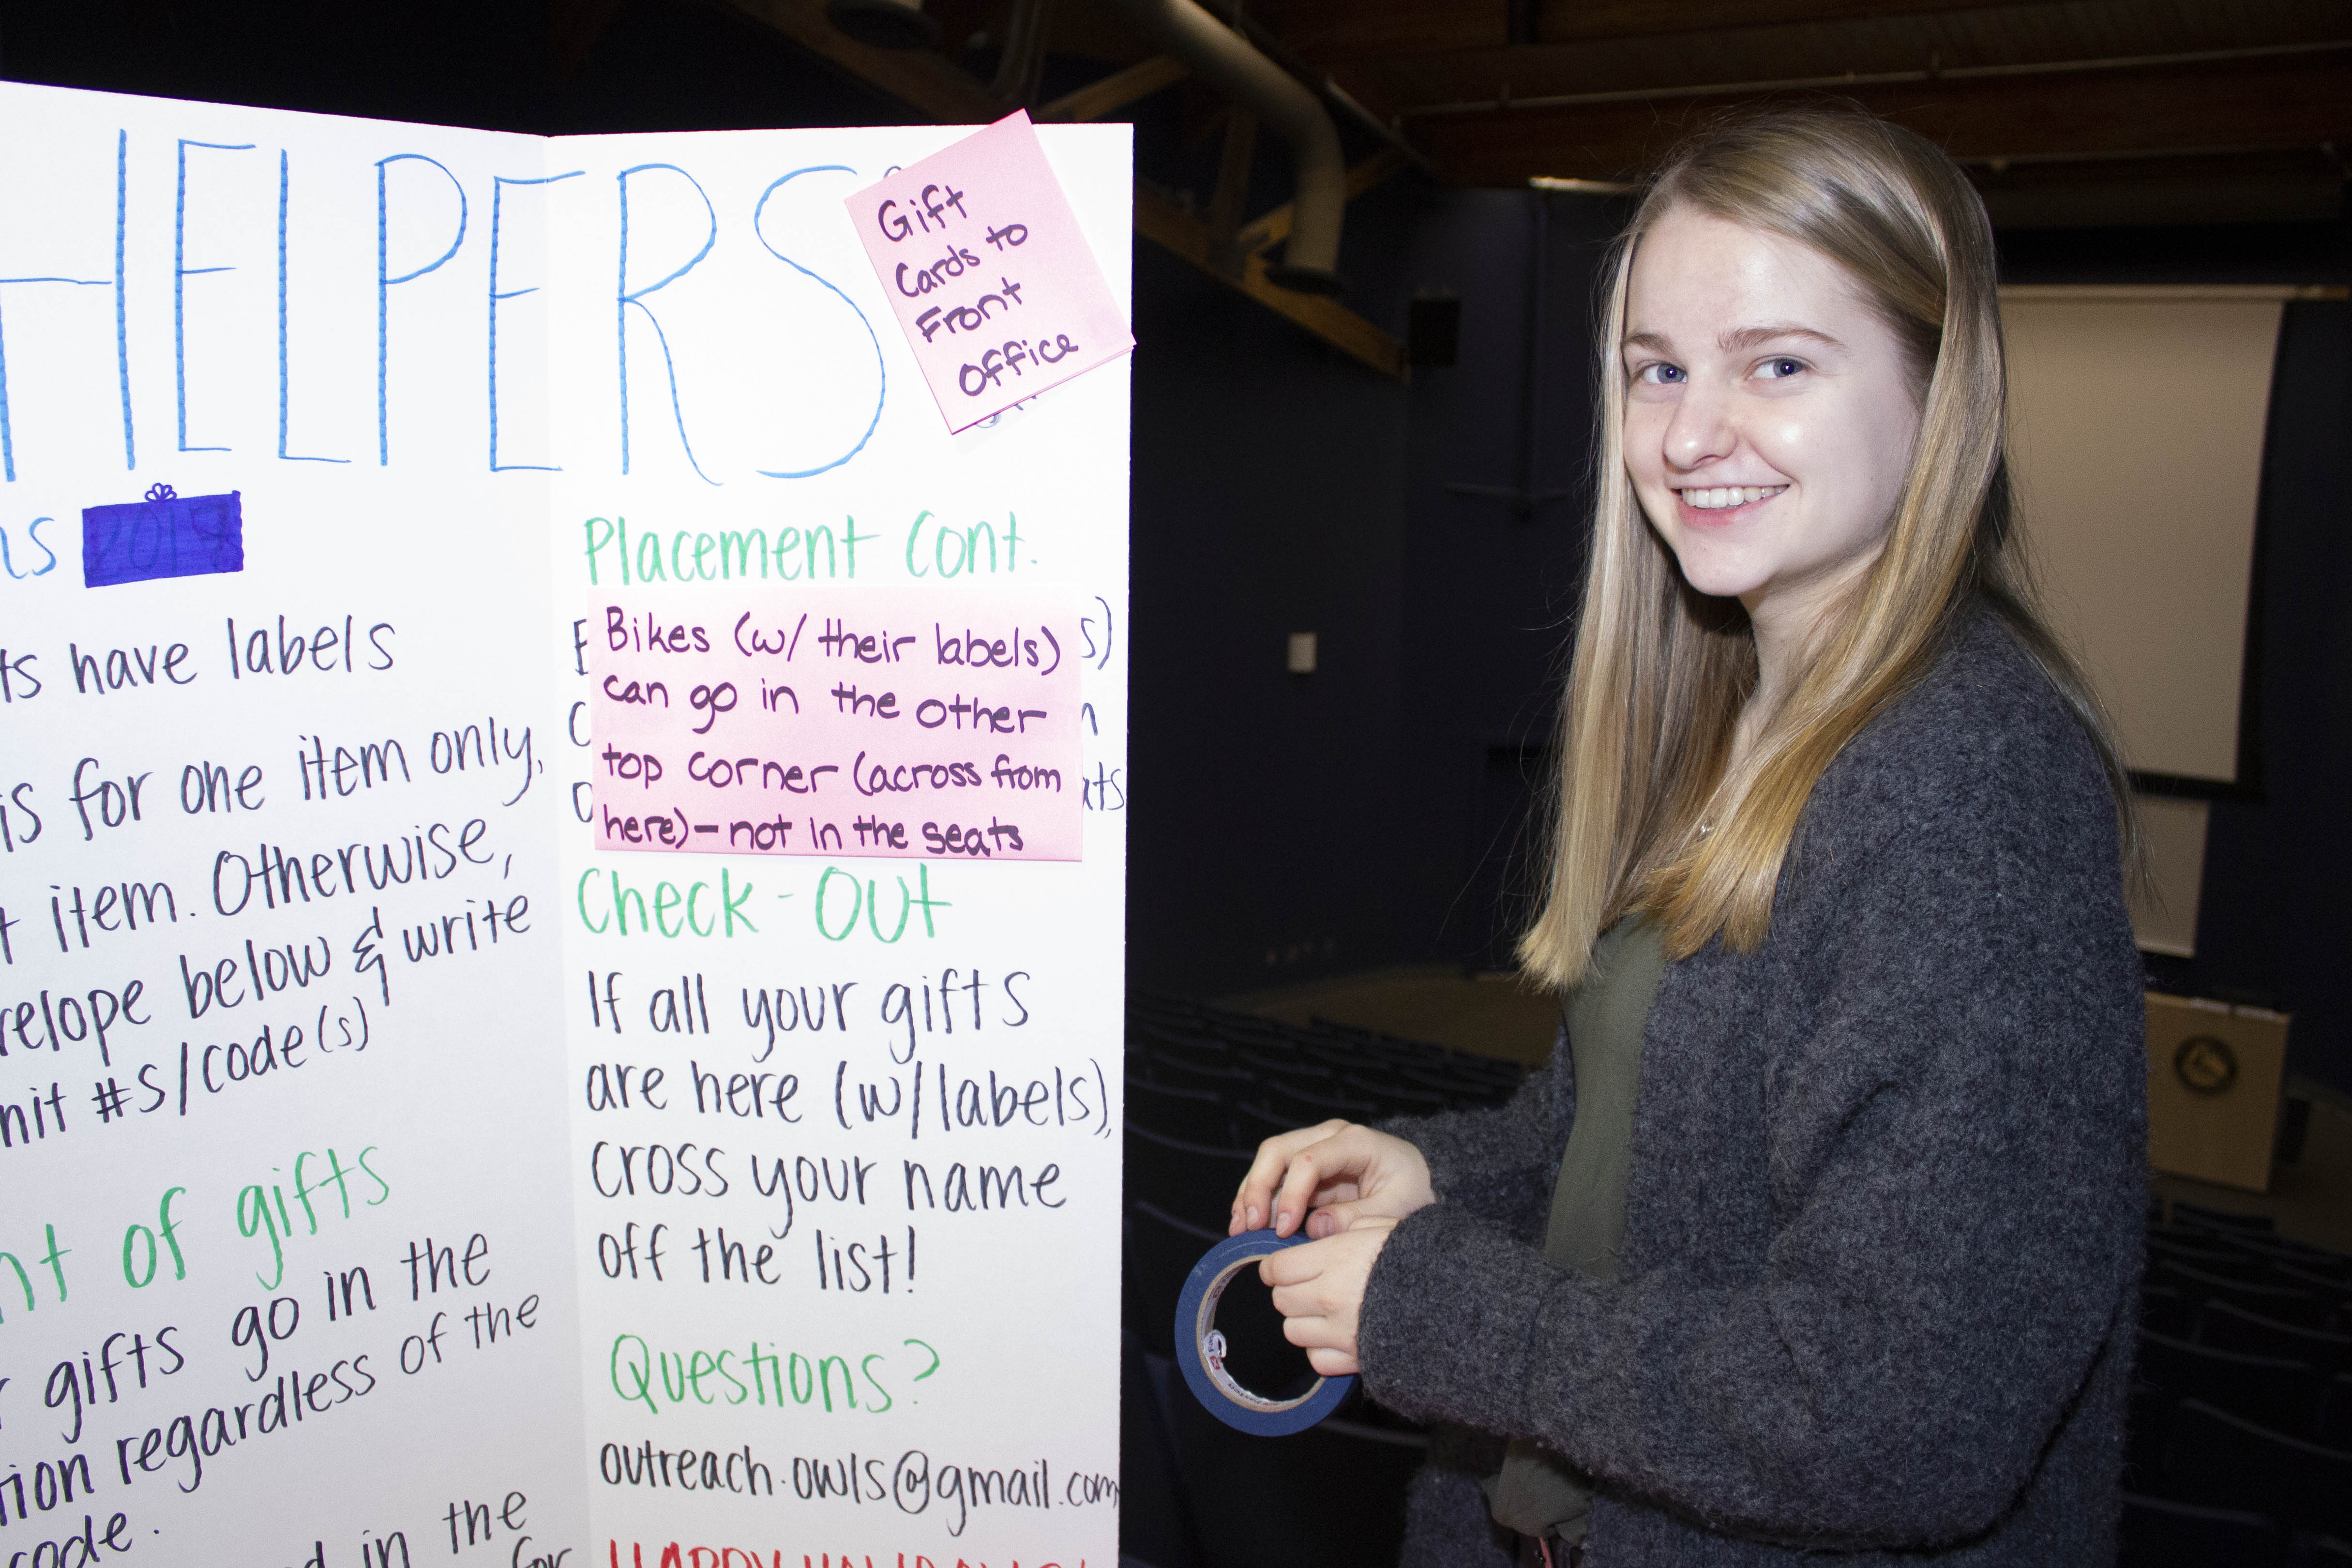 HELPERS
Gift
Cards to
Front
Office
ns 2018
ts have labels
is for one item only,
t item. Otherwise,
velope below & write
nit #s/code(s)
nt of gifts
r gifts go in the
tion regardless of the
code.
d in the
for
Placement Cont.
Bikes (w/ their labels)
can go in the other
top corner (across from
here) - not in the seats
Check-Out
If all your gifts
are here (w/labels),
cross your name
off the list!
Questions?
outreach.owls@gmail.com
HAPPY HOLIDAYS